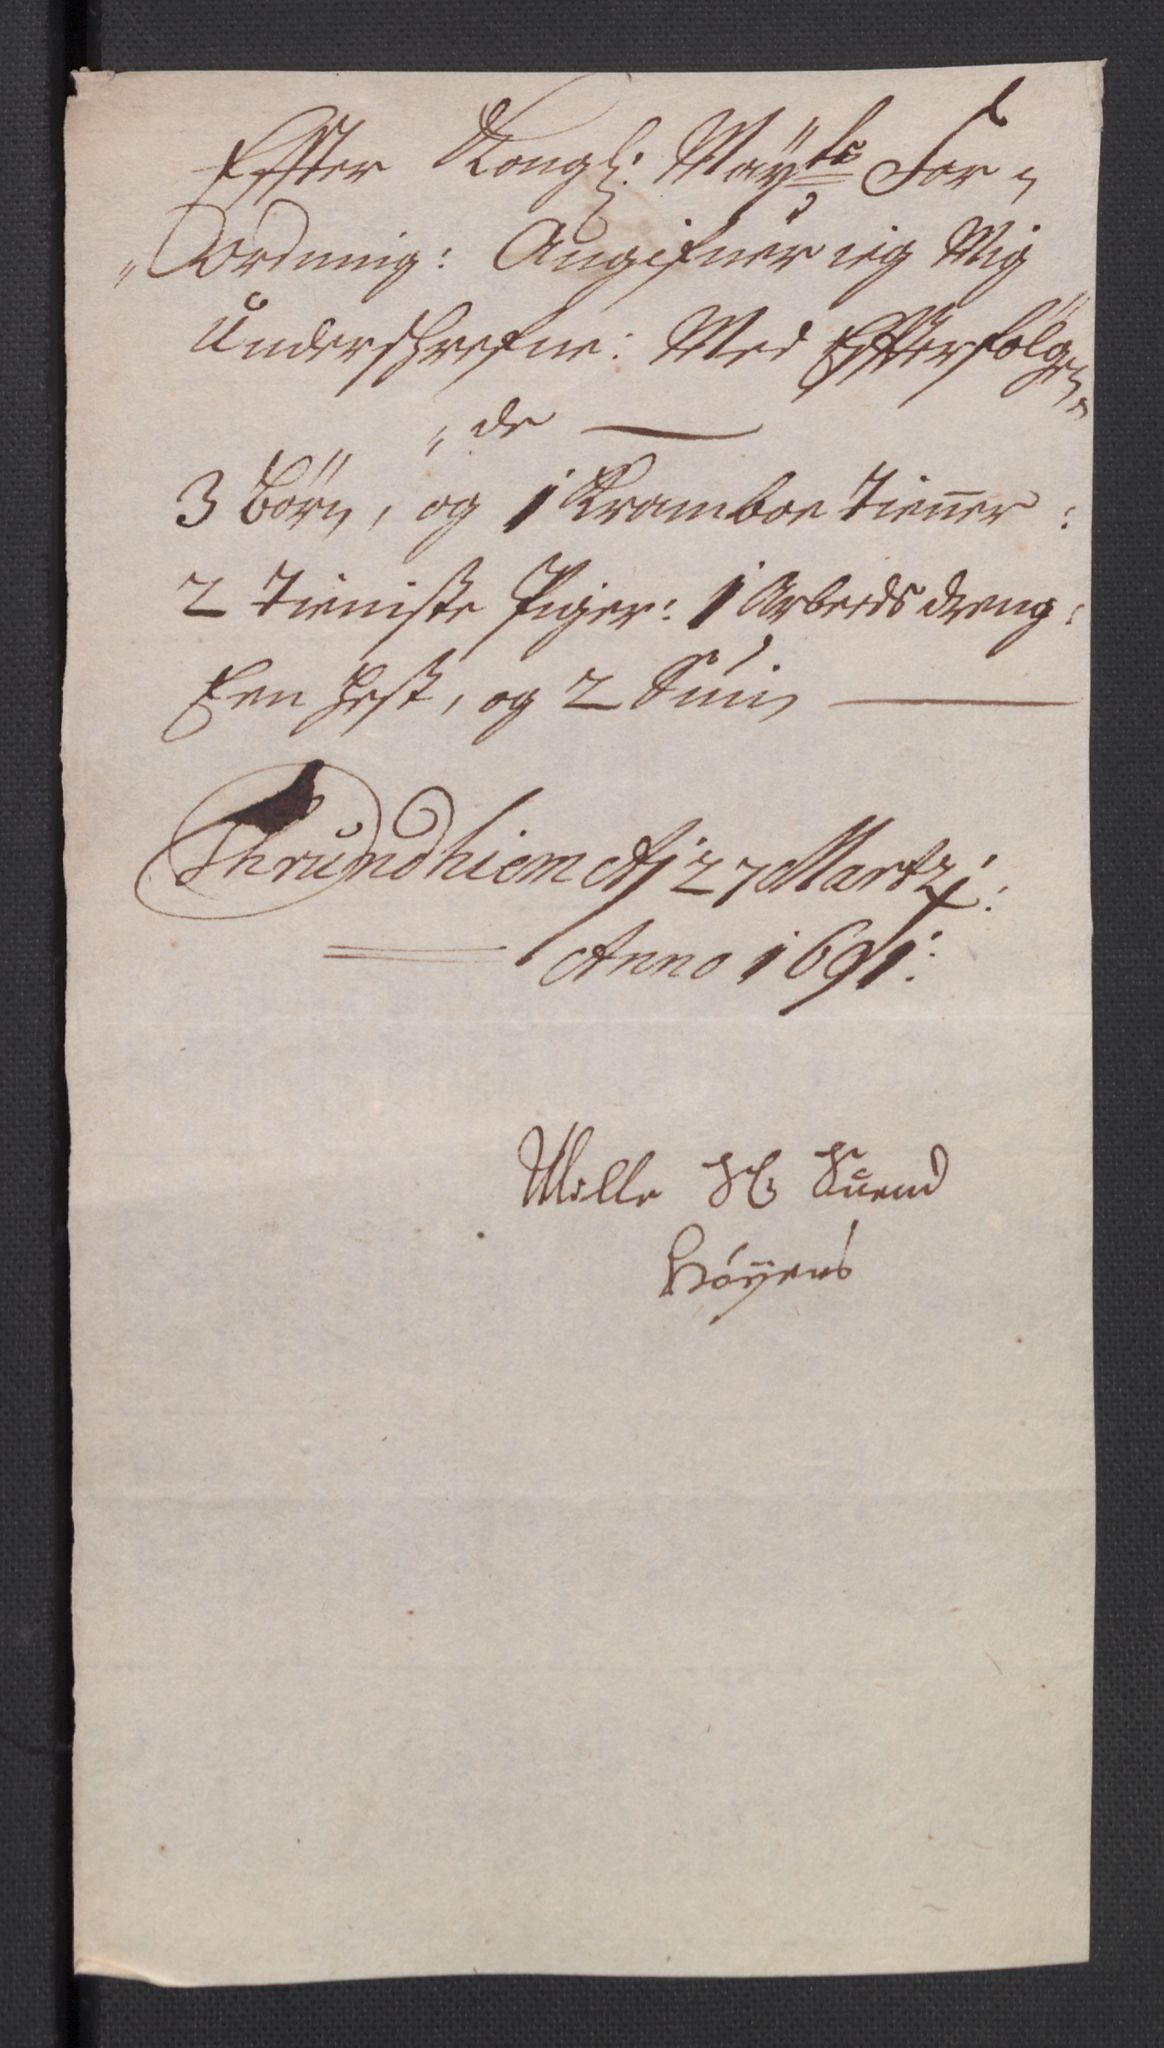 Effter Kongl: Maÿts For=
=Ordning: Angifuer ieg Mig
Underschrefne: Med Effterfølgen=
=de
3 Børn, og 1 Kramboe Tienner:
2 Tieniste Piger: 1 Arbeids dreng:
Een Hest, og 2 Suin
Thrundhiem dj 27 Martzj:
Anno 1691:
Mille Sl Suend
Høÿers